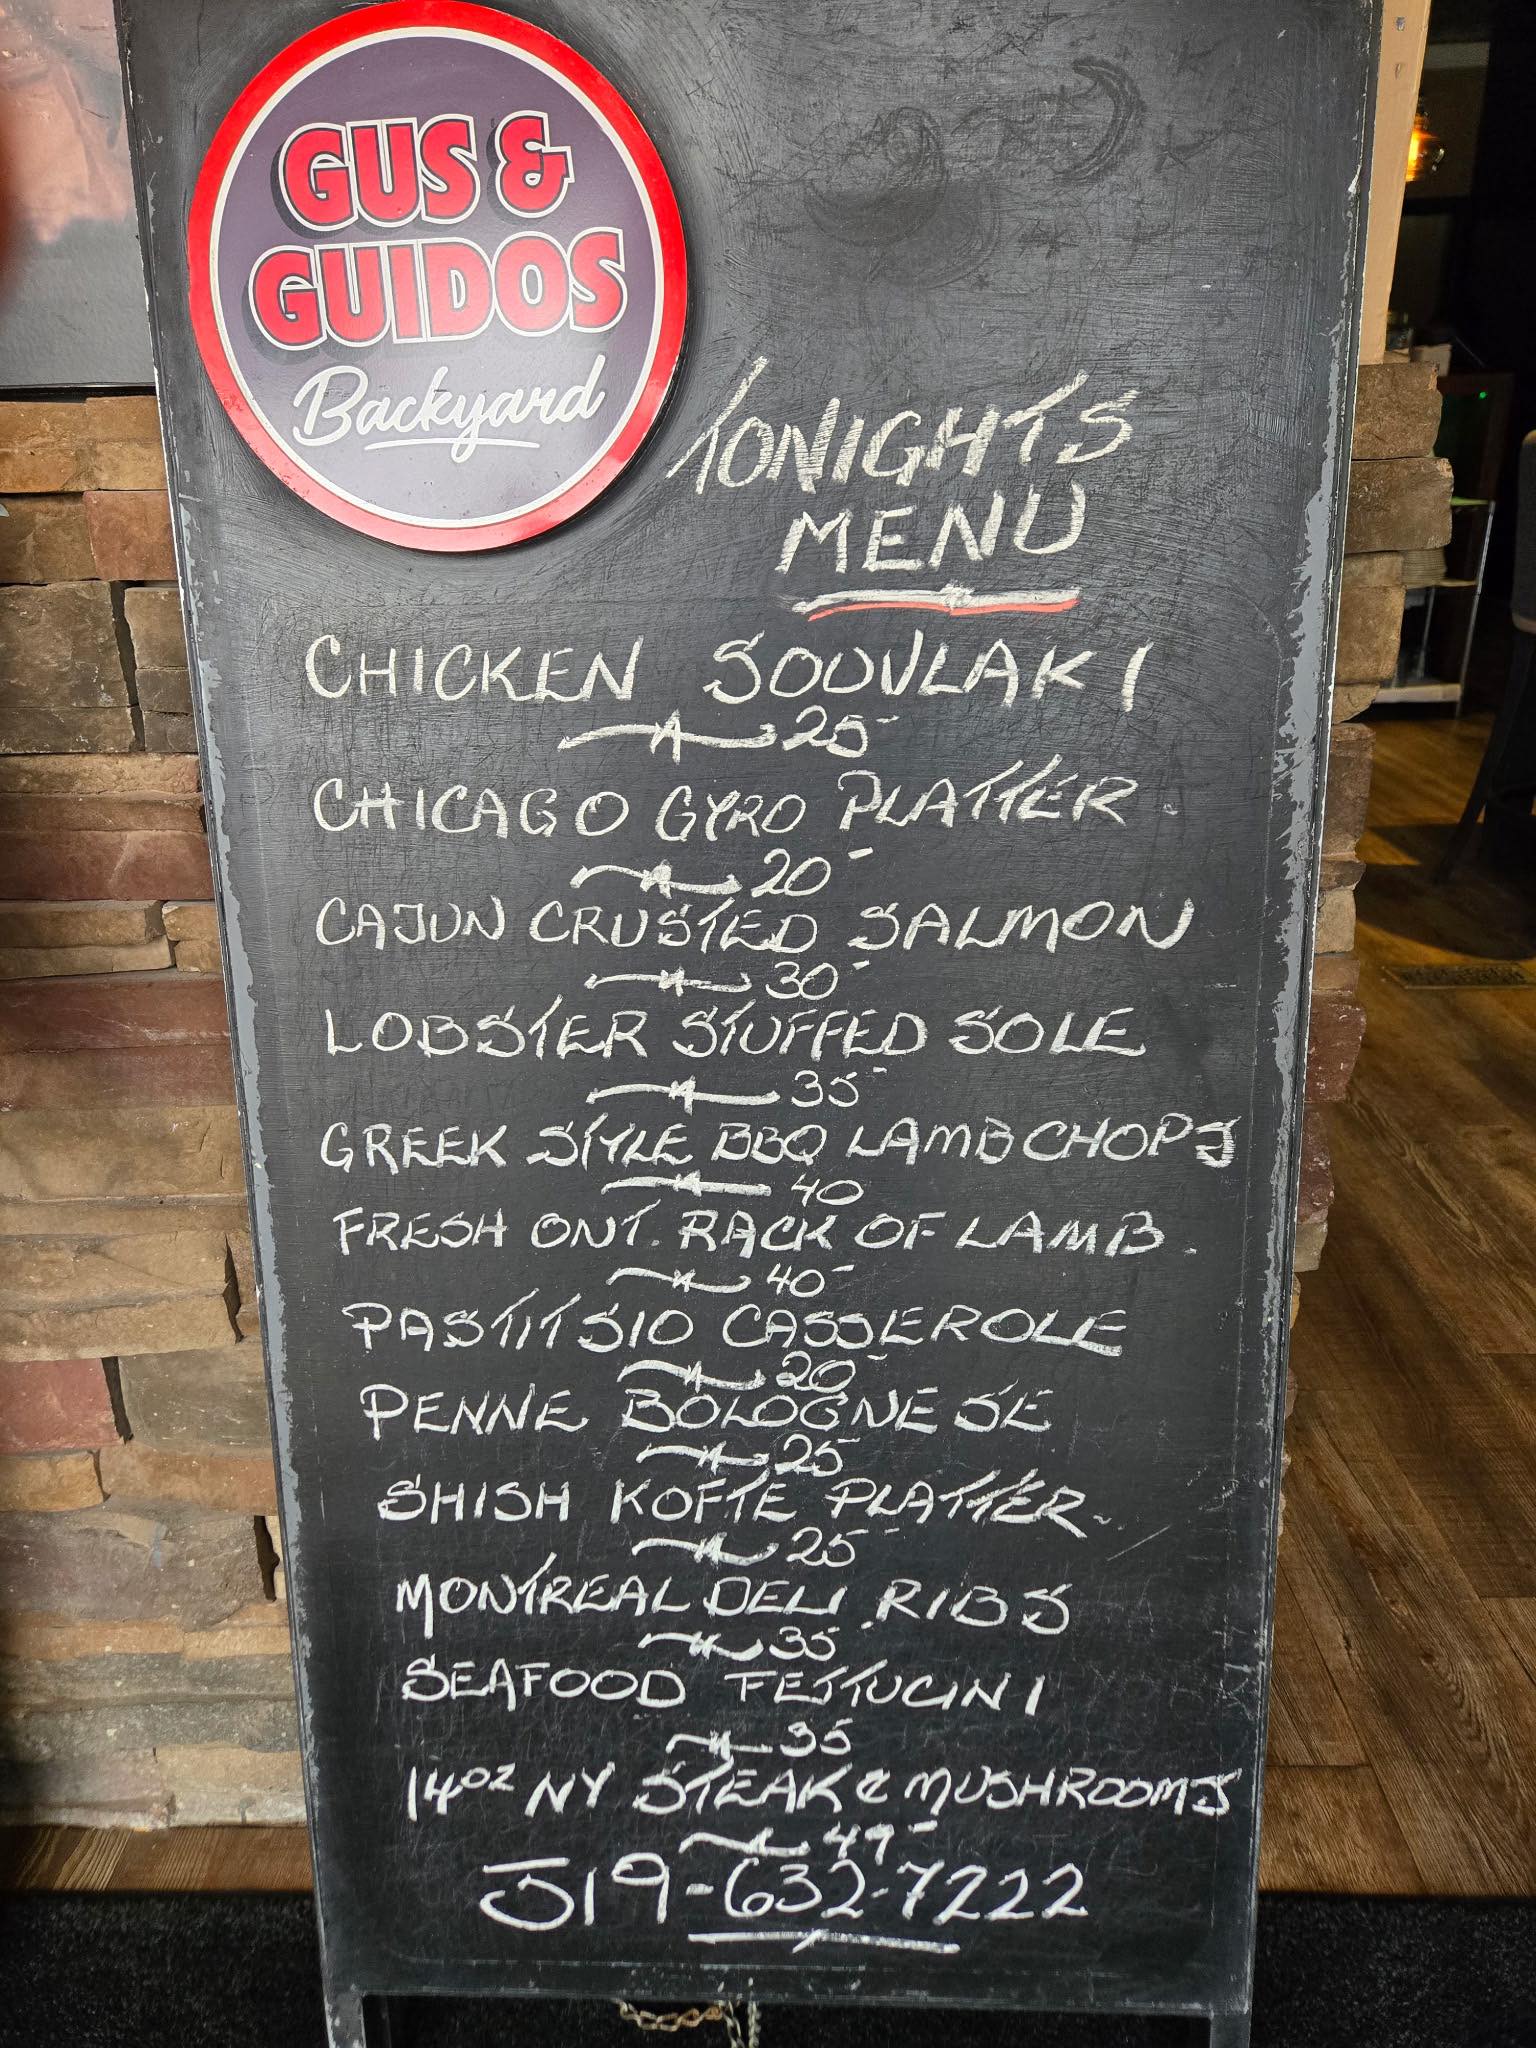 GUS &
GUIDOS
Backyard
TONIGHTS
MENU
CHICKEN SOUVLAKI
25-
CHICAGO GYRO PLATTER.
20-
CAJUN CRUSTED SALMON
30-
LOBSTER STUFFED SOLE
35-
GREEK STYLE BBQ LAMB CHOPS
40
FRESH ONT. RACK OF LAMB.
40-
PASTITSIO CASSEROLE
20-
PENNE BOLOGNESE
25-
SHISH KOFTE PLATTER.
25-
MONTREAL DELI RIBS
35-
SEAFOOD FETTUCINI
35
14oz NY STEAK & MUSHROOMS
49-
519-632-7222